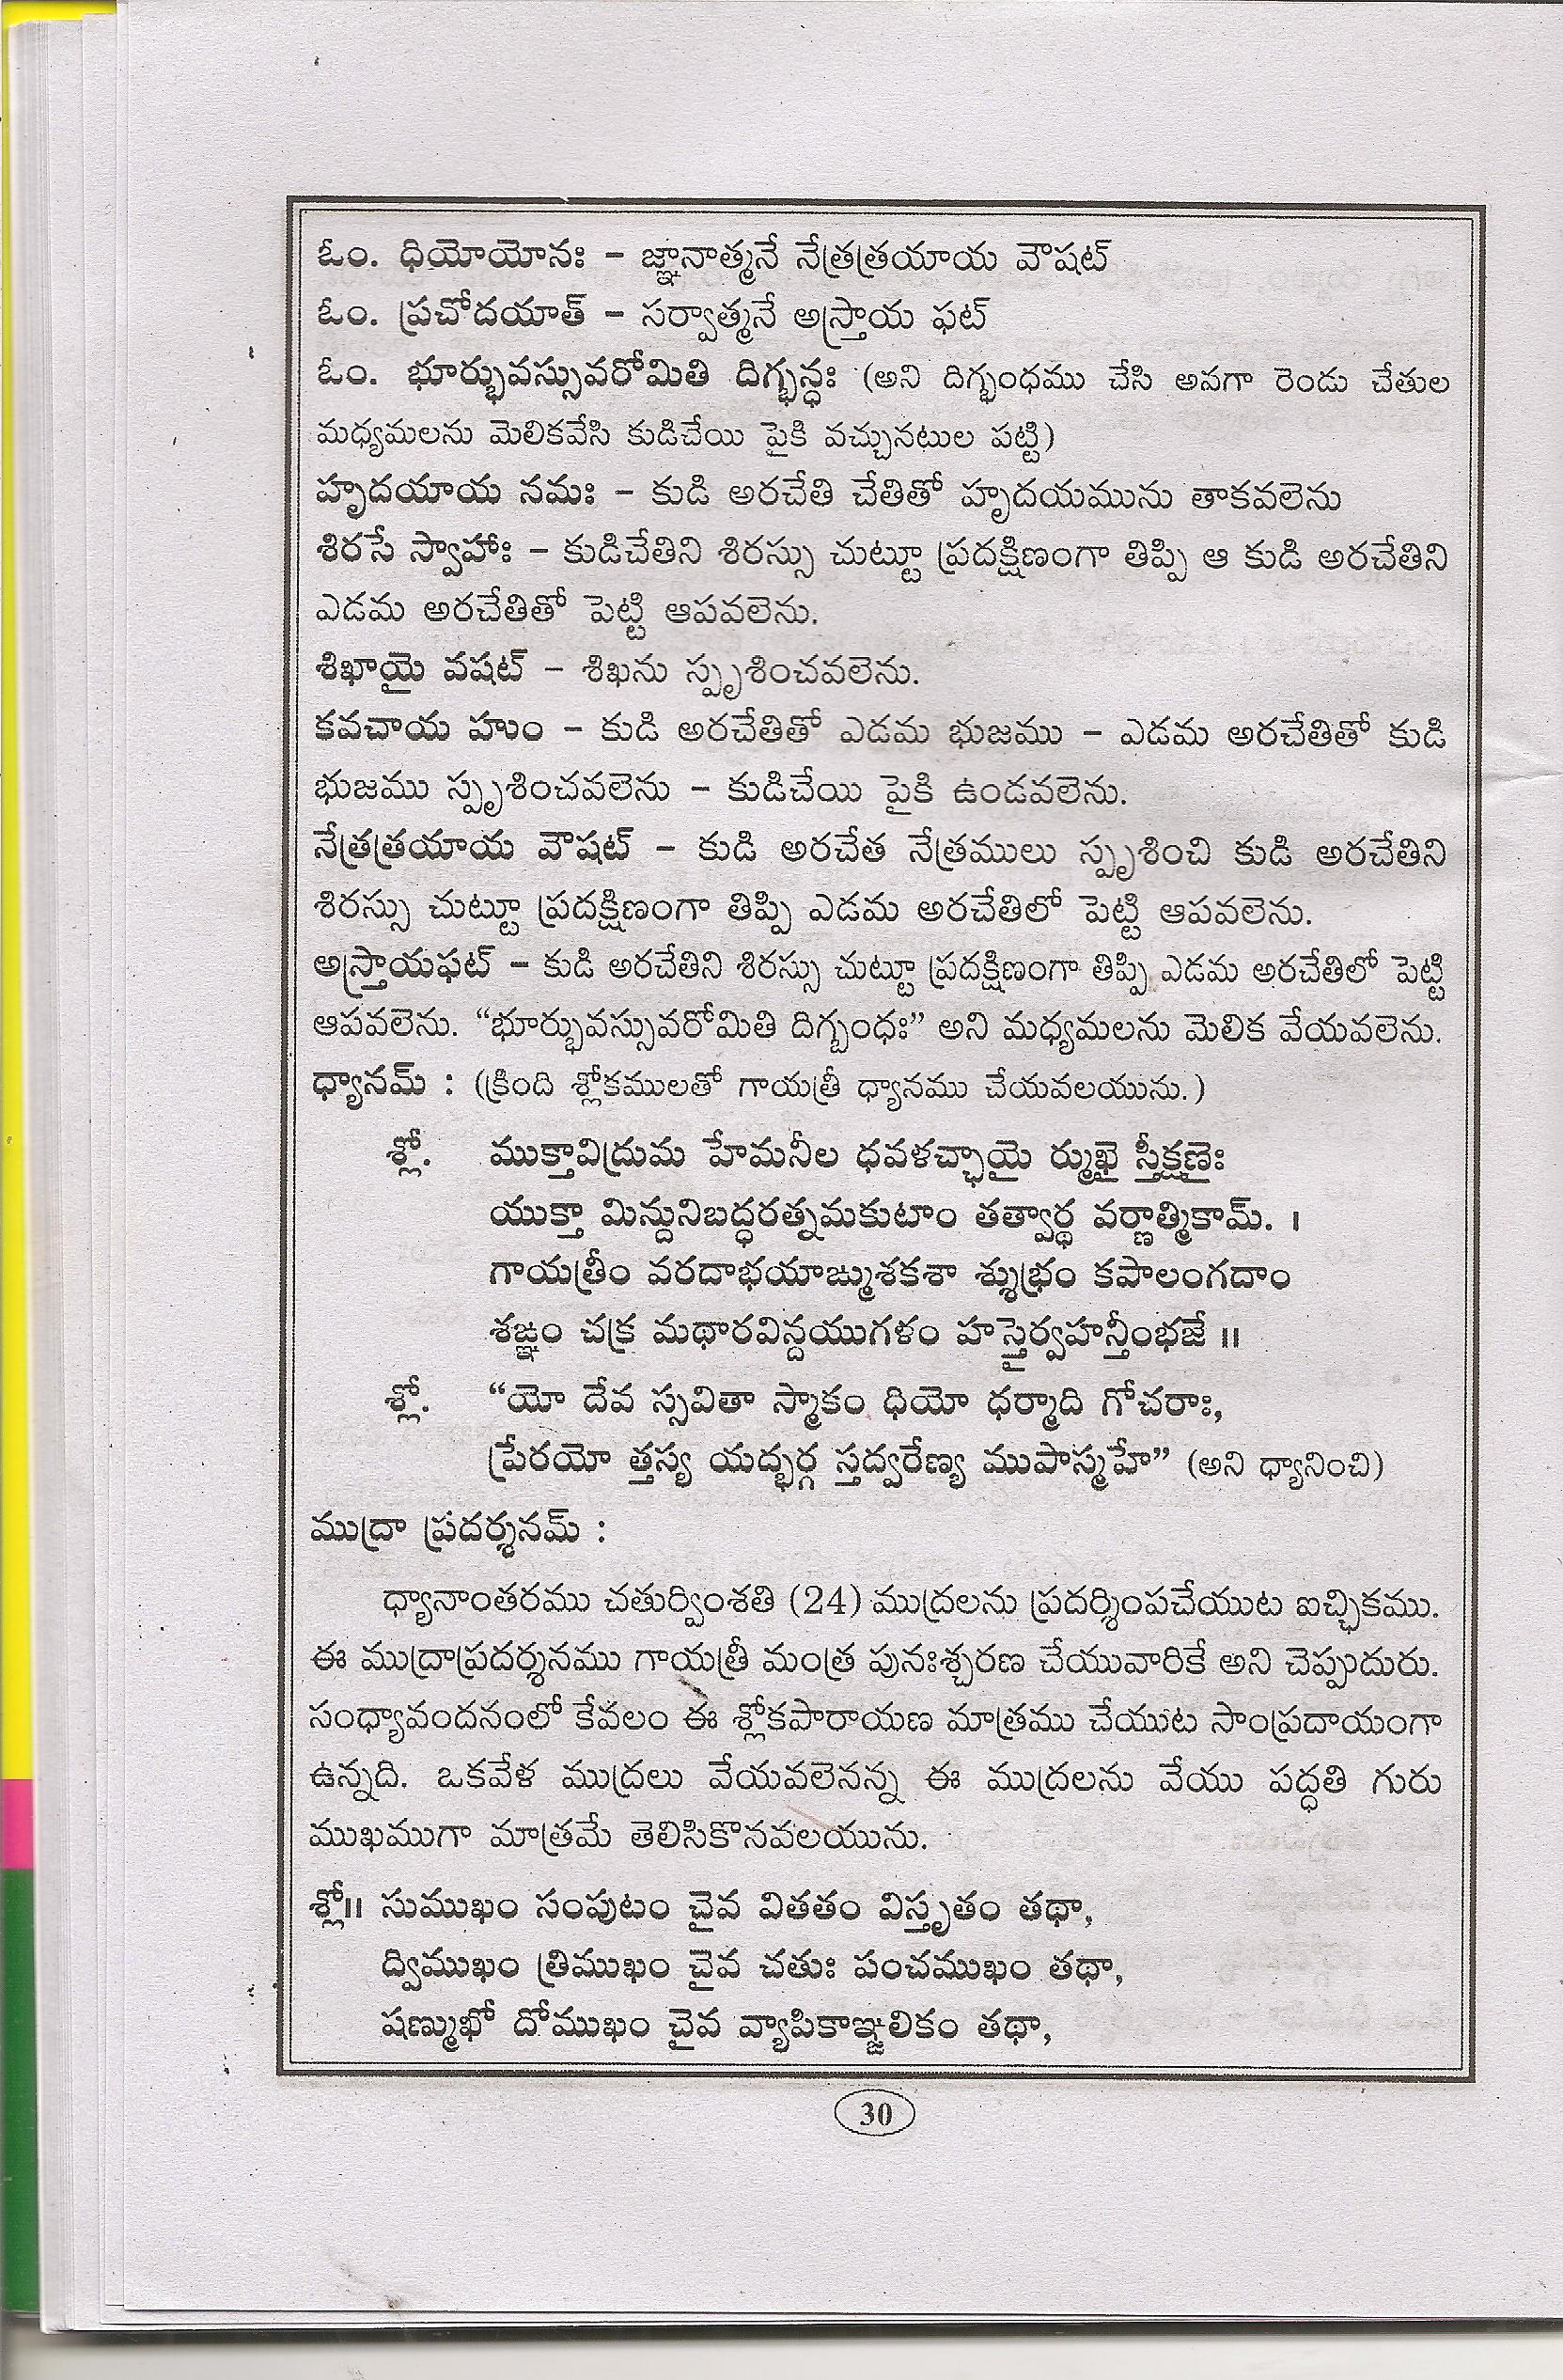 ఓం. ధియోయోనః – జ్ఞానాత్మనే నేత్రత్రయాయ వౌషట్
ఓం. ప్రచోదయాత్ – సర్వాత్మనే అస్త్రాయ ఫట్
ఓం. భూర్భువస్సువరోమితి దిగ్భన్ధః (అని దిగ్భంధము చేసి అనగా రెండు చేతుల
మధ్యమలను మెలికవేసి కుడిచేయి పైకి వచ్చునటుల పట్టి)
హృదయాయ నమః – కుడి అరచేతి చేతితో హృదయమును తాకవలెను
శిరసే స్వాహాః – కుడిచేతిని శిరస్సు చుట్టూ ప్రదక్షిణంగా తిప్పి ఆ కుడి అరచేతిని
ఎడమ అరచేతితో పెట్టి ఆపవలెను.
శిఖాయై వషట్ – శిఖను స్పృశించవలెను.
కవచాయ హుం – కుడి అరచేతితో ఎడమ భుజము – ఎడమ అరచేతితో కుడి
భుజము స్పృశించవలెను – కుడిచేయి పైకి ఉండవలెను.
నేత్రత్రయాయ వౌషట్ – కుడి అరచేత నేత్రములు స్పృశించి కుడి అరచేతిని
శిరస్సు చుట్టూ ప్రదక్షిణంగా తిప్పి ఎడమ అరచేతిలో పెట్టి ఆపవలెను.
అస్త్రాయఫట్ – కుడి అరచేతిని శిరస్సు చుట్టూ ప్రదక్షిణంగా తిప్పి ఎడమ అరచేతిలో పెట్టి
ఆపవలెను. “భూర్భువస్సువరోమితి దిగ్బంధః” అని మధ్యమలను మెలిక వేయవలెను.
ధ్యానమ్ : (క్రింది శ్లోకములతో గాయత్రీ ధ్యానము చేయవలయును.)
శ్లో. ముక్తావిద్రుమ హేమనీల ధవళచ్ఛాయై ర్ముఖై స్తీక్షణైః
యుక్తా మిన్దునిబద్ధరత్నమకుటాం తత్వార్థ వర్ణాత్మికామ్. ।
గాయత్రీం వరదాభయాఙ్ముశకశా శ్శుభ్రం కపాలంగదాం
శఙ్ఞం చక్ర మథారవిన్దయుగళం హస్తైర్వహన్తీంభజే ॥
శ్లో. “యో దేవ స్సవితా స్మాకం ధియో ధర్మాది గోచరాః,
ప్రేరయో త్తస్య యద్భర్గ స్తద్వరేణ్య ముపాస్మహే” (అని ధ్యానించి)
ముద్రా ప్రదర్శనమ్ :
ధ్యానాంతరము చతుర్వింశతి (24) ముద్రలను ప్రదర్శింపచేయుట ఐచ్ఛికము.
ఈ ముద్రాప్రదర్శనము గాయత్రీ మంత్ర పునఃశ్చరణ చేయువారికే అని చెప్పుదురు.
సంధ్యావందనంలో కేవలం ఈ శ్లోకపారాయణ మాత్రము చేయుట సాంప్రదాయంగా
ఉన్నది. ఒకవేళ ముద్రలు వేయవలెనన్న ఈ ముద్రలను వేయు పద్ధతి గురు
ముఖముగా మాత్రమే తెలిసికొనవలయును.
శ్లో॥ సుముఖం సంపుటం చైవ వితతం విస్తృతం తథా,
ద్విముఖం త్రిముఖం చైవ చతుః పంచముఖం తథా,
షణ్ముఖో దోముఖం చైవ వ్యాపికాఞ్జలికం తథా,
30